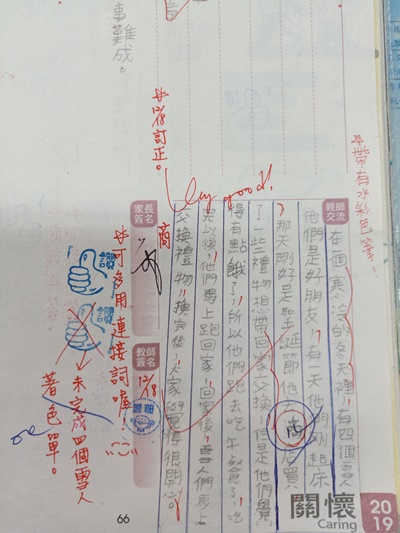 事難成。
12/18訂正。
very good!
帶有水彩色筆!
親師交流
在一個寒冷的冬天裡,有四個雪人
他們是好朋友,有一天他們剛起床
那天剛好是聖誕節他們
買
了一些禮物想帶回家交換,但是他們覺
得有點餓了,所以他們跑去吃午餐了,吃
完以後,他們馬上跑回家,回家後,雪人們馬上
交換禮物,換完後,大家都覺得很開心。
家長簽名
教師簽名
12/18
讚
讚
可多用連接詞喔!
未完成四個雪人
著色單。
66
關懷
Caring
2019